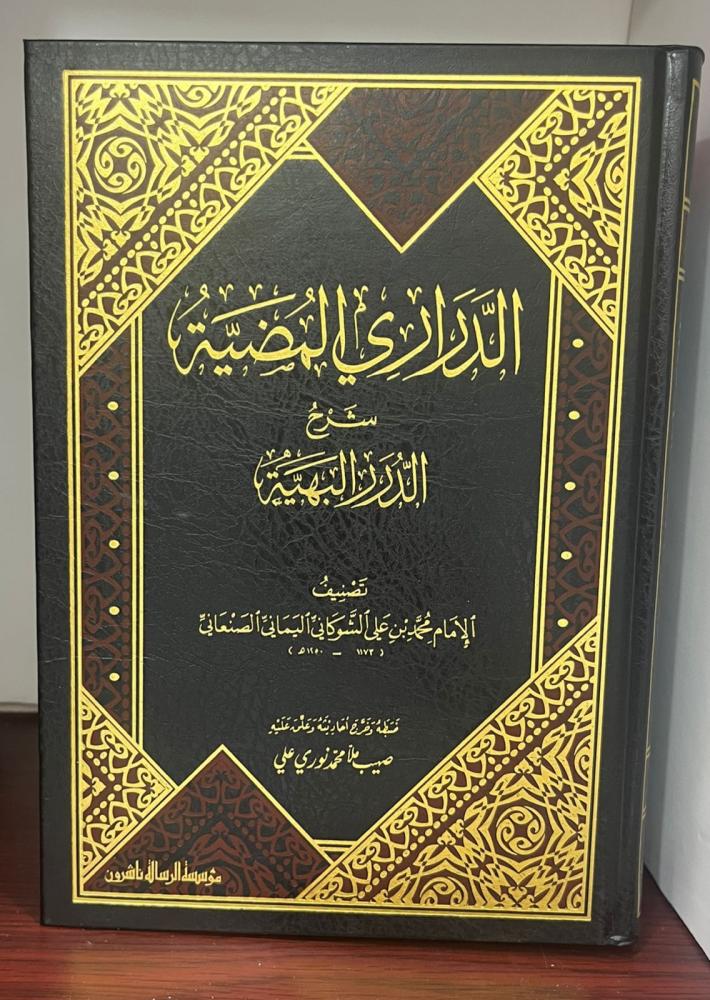 الدَّرَارِي المُضِيَّةُ
شَرْحُ
الدُّرَرِ البَهِيَّةِ
تَصْنِيفُ
الإِمَامِ مُحَمَّدِ بْنِ عَلِيِّ الشَّوْكَانِيِّ اليَمَانِيِّ الصَّنْعَانِيِّ
( ١١٧٣ - ١٢٥٠ هـ )
ضَبَطَهُ وَخَرَّجَ أَحَادِيثَهُ وَعَلَّقَ عَلَيْهِ
صهيب ملا محمد نوري علي
مؤسسة الرسالة ناشرون